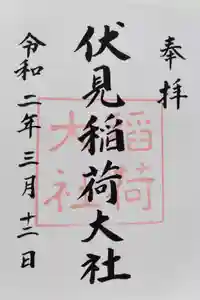 奉拝
伏見稲荷大社
令和二年三月十二日
稲荷
大社